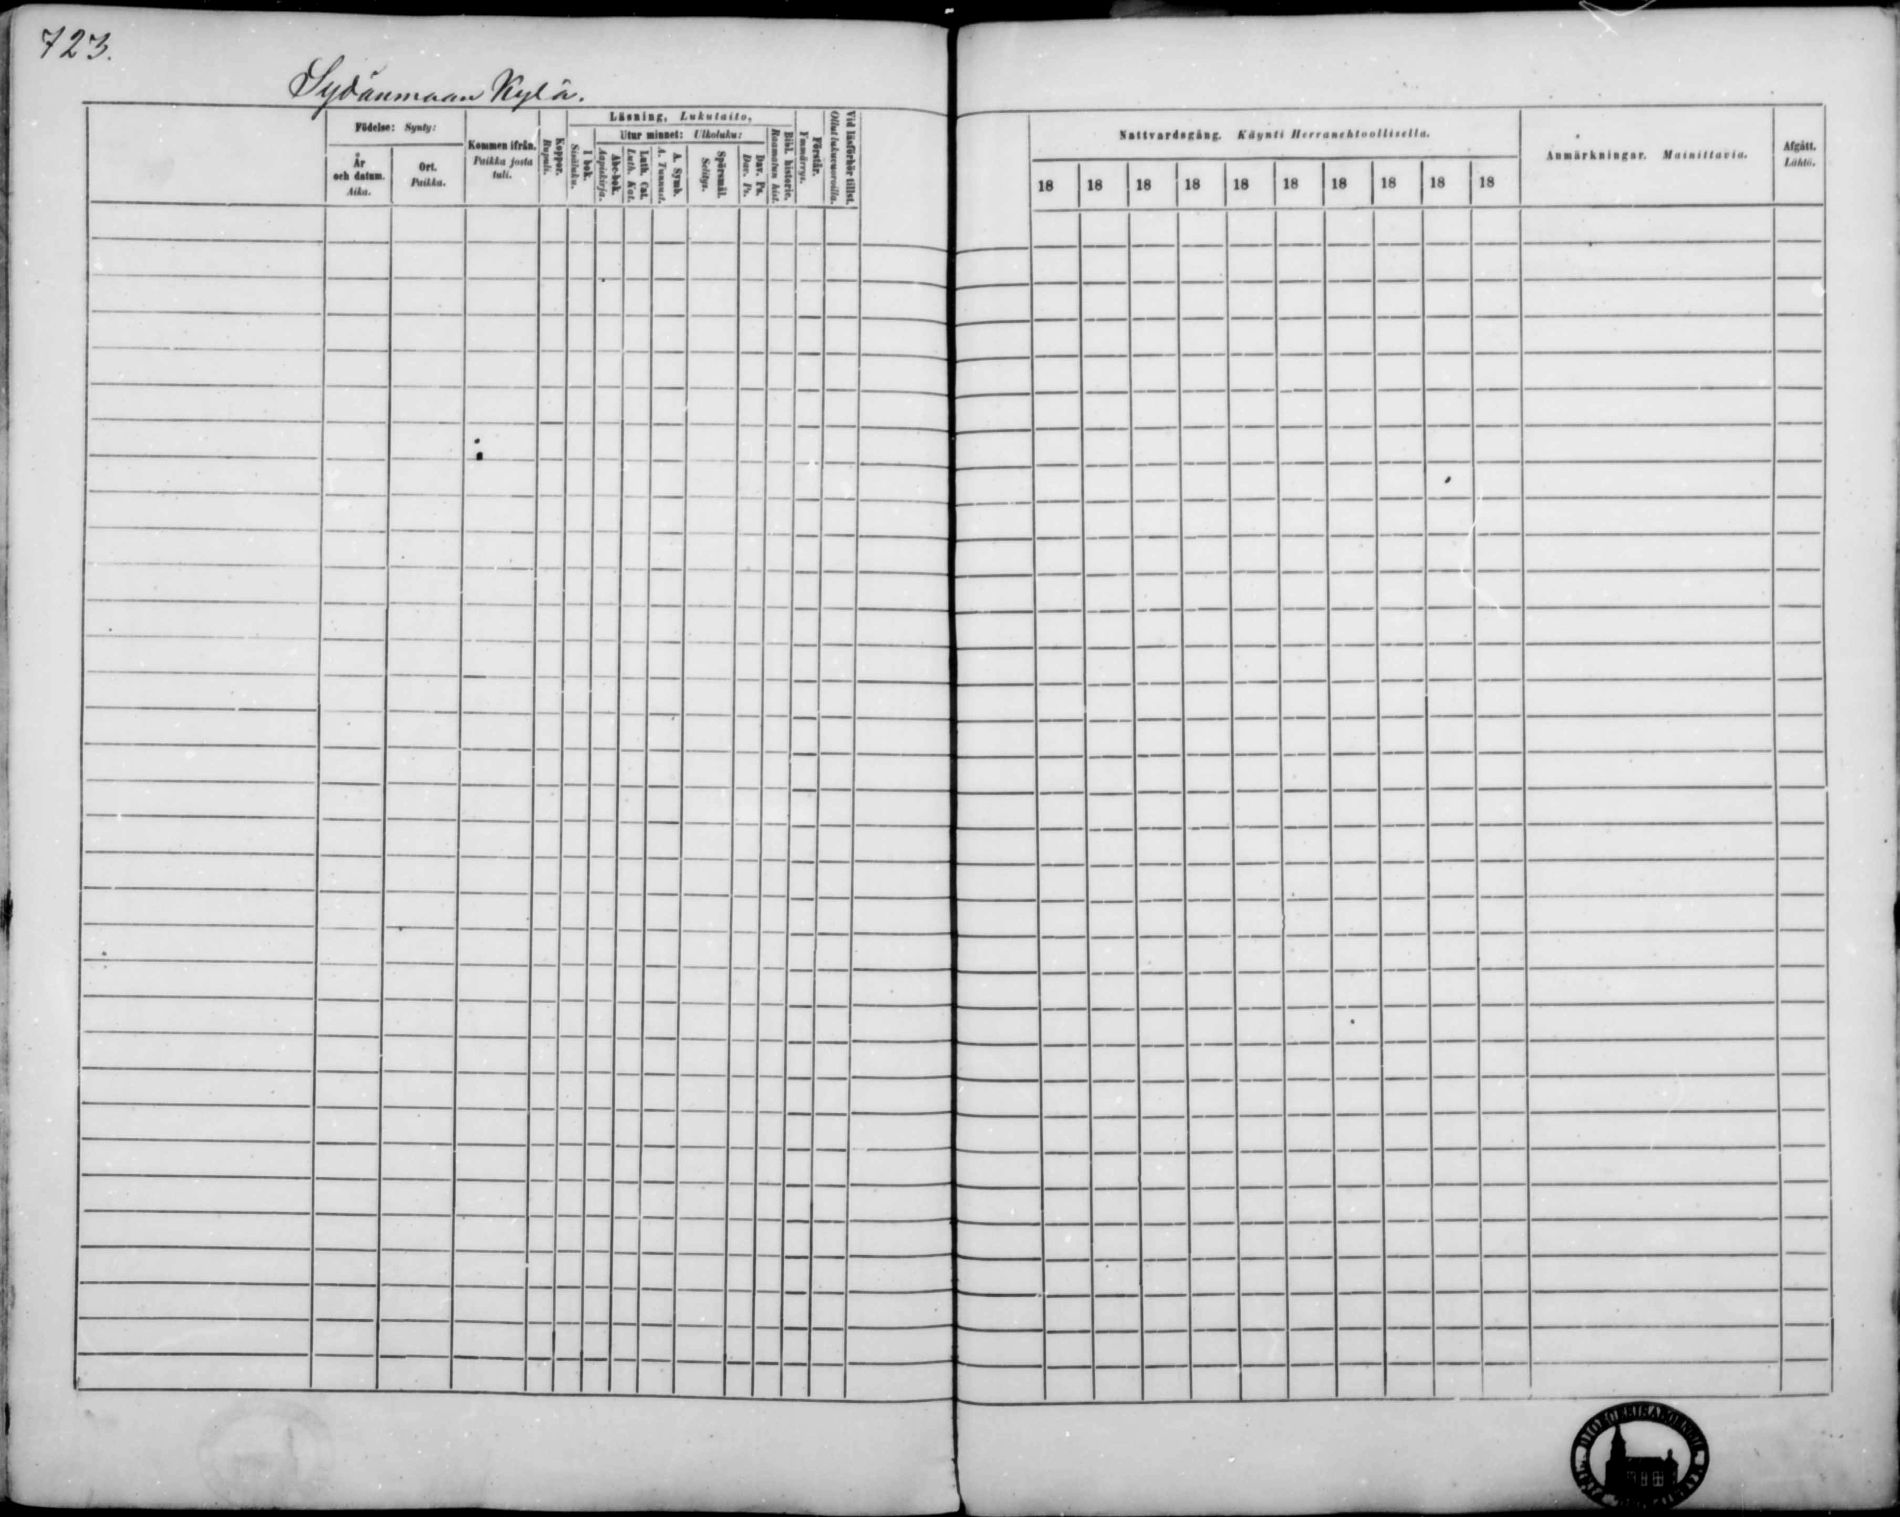 723.
Sydänmaan Kylä.
Födelse: Synty:
År
och datum.
Aika.
Ort.
Paikka.
Kommen ifrån.
Paikka josta
tuli.
Koppor.
Rupuli.
Läsning, Lukutaito,
I bok.
Sisäluku.
Utur minnet: Ulkoluku:
Abc-bok.
Aapiskirja.
Luth. Cat.
Luth. Kat.
A. Symb.
A. Tunnust.
Spörsmål.
Selitys.
Dav. Ps.
Dav. Ps.
Bibl. historie.
Raamatun hist.
Förstår.
Ymmärrys.
Vid läsförhör tillst.
Ollut lukuvuorolla.
Nattvardsgång. Käynti Herranehtoollisella.
18 18 18 18 18 18 18 18 18 18
Anmärkningar. Mainittavia.
Afgått.
Lähtö.